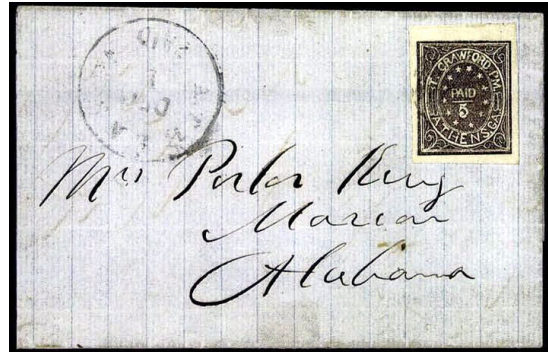 T. CRAWFORD, P.M.
PAID
5
ATHENS, GA.
Mrs Porter King
Marion
Alabama